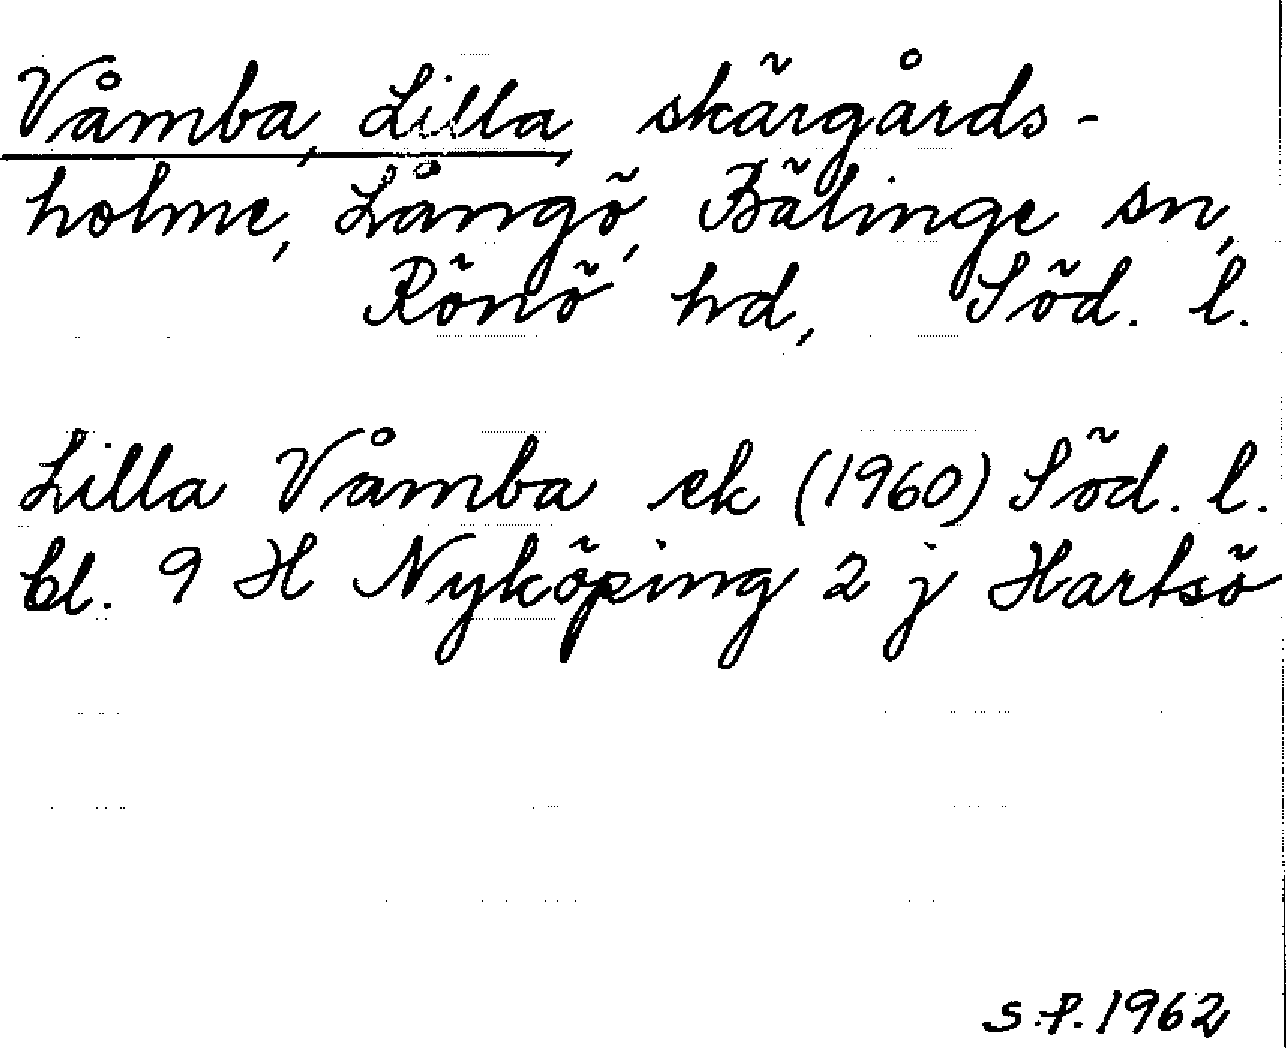 Våmba, Lilla, skärgårds-
holme, Långö, Bälinge sn,
Rönö hd, Söd. l.
Lilla Våmba ek (1960) Söd. l.
bl. 9 H Nyköping 2 j Hartsö
S.P. 1962